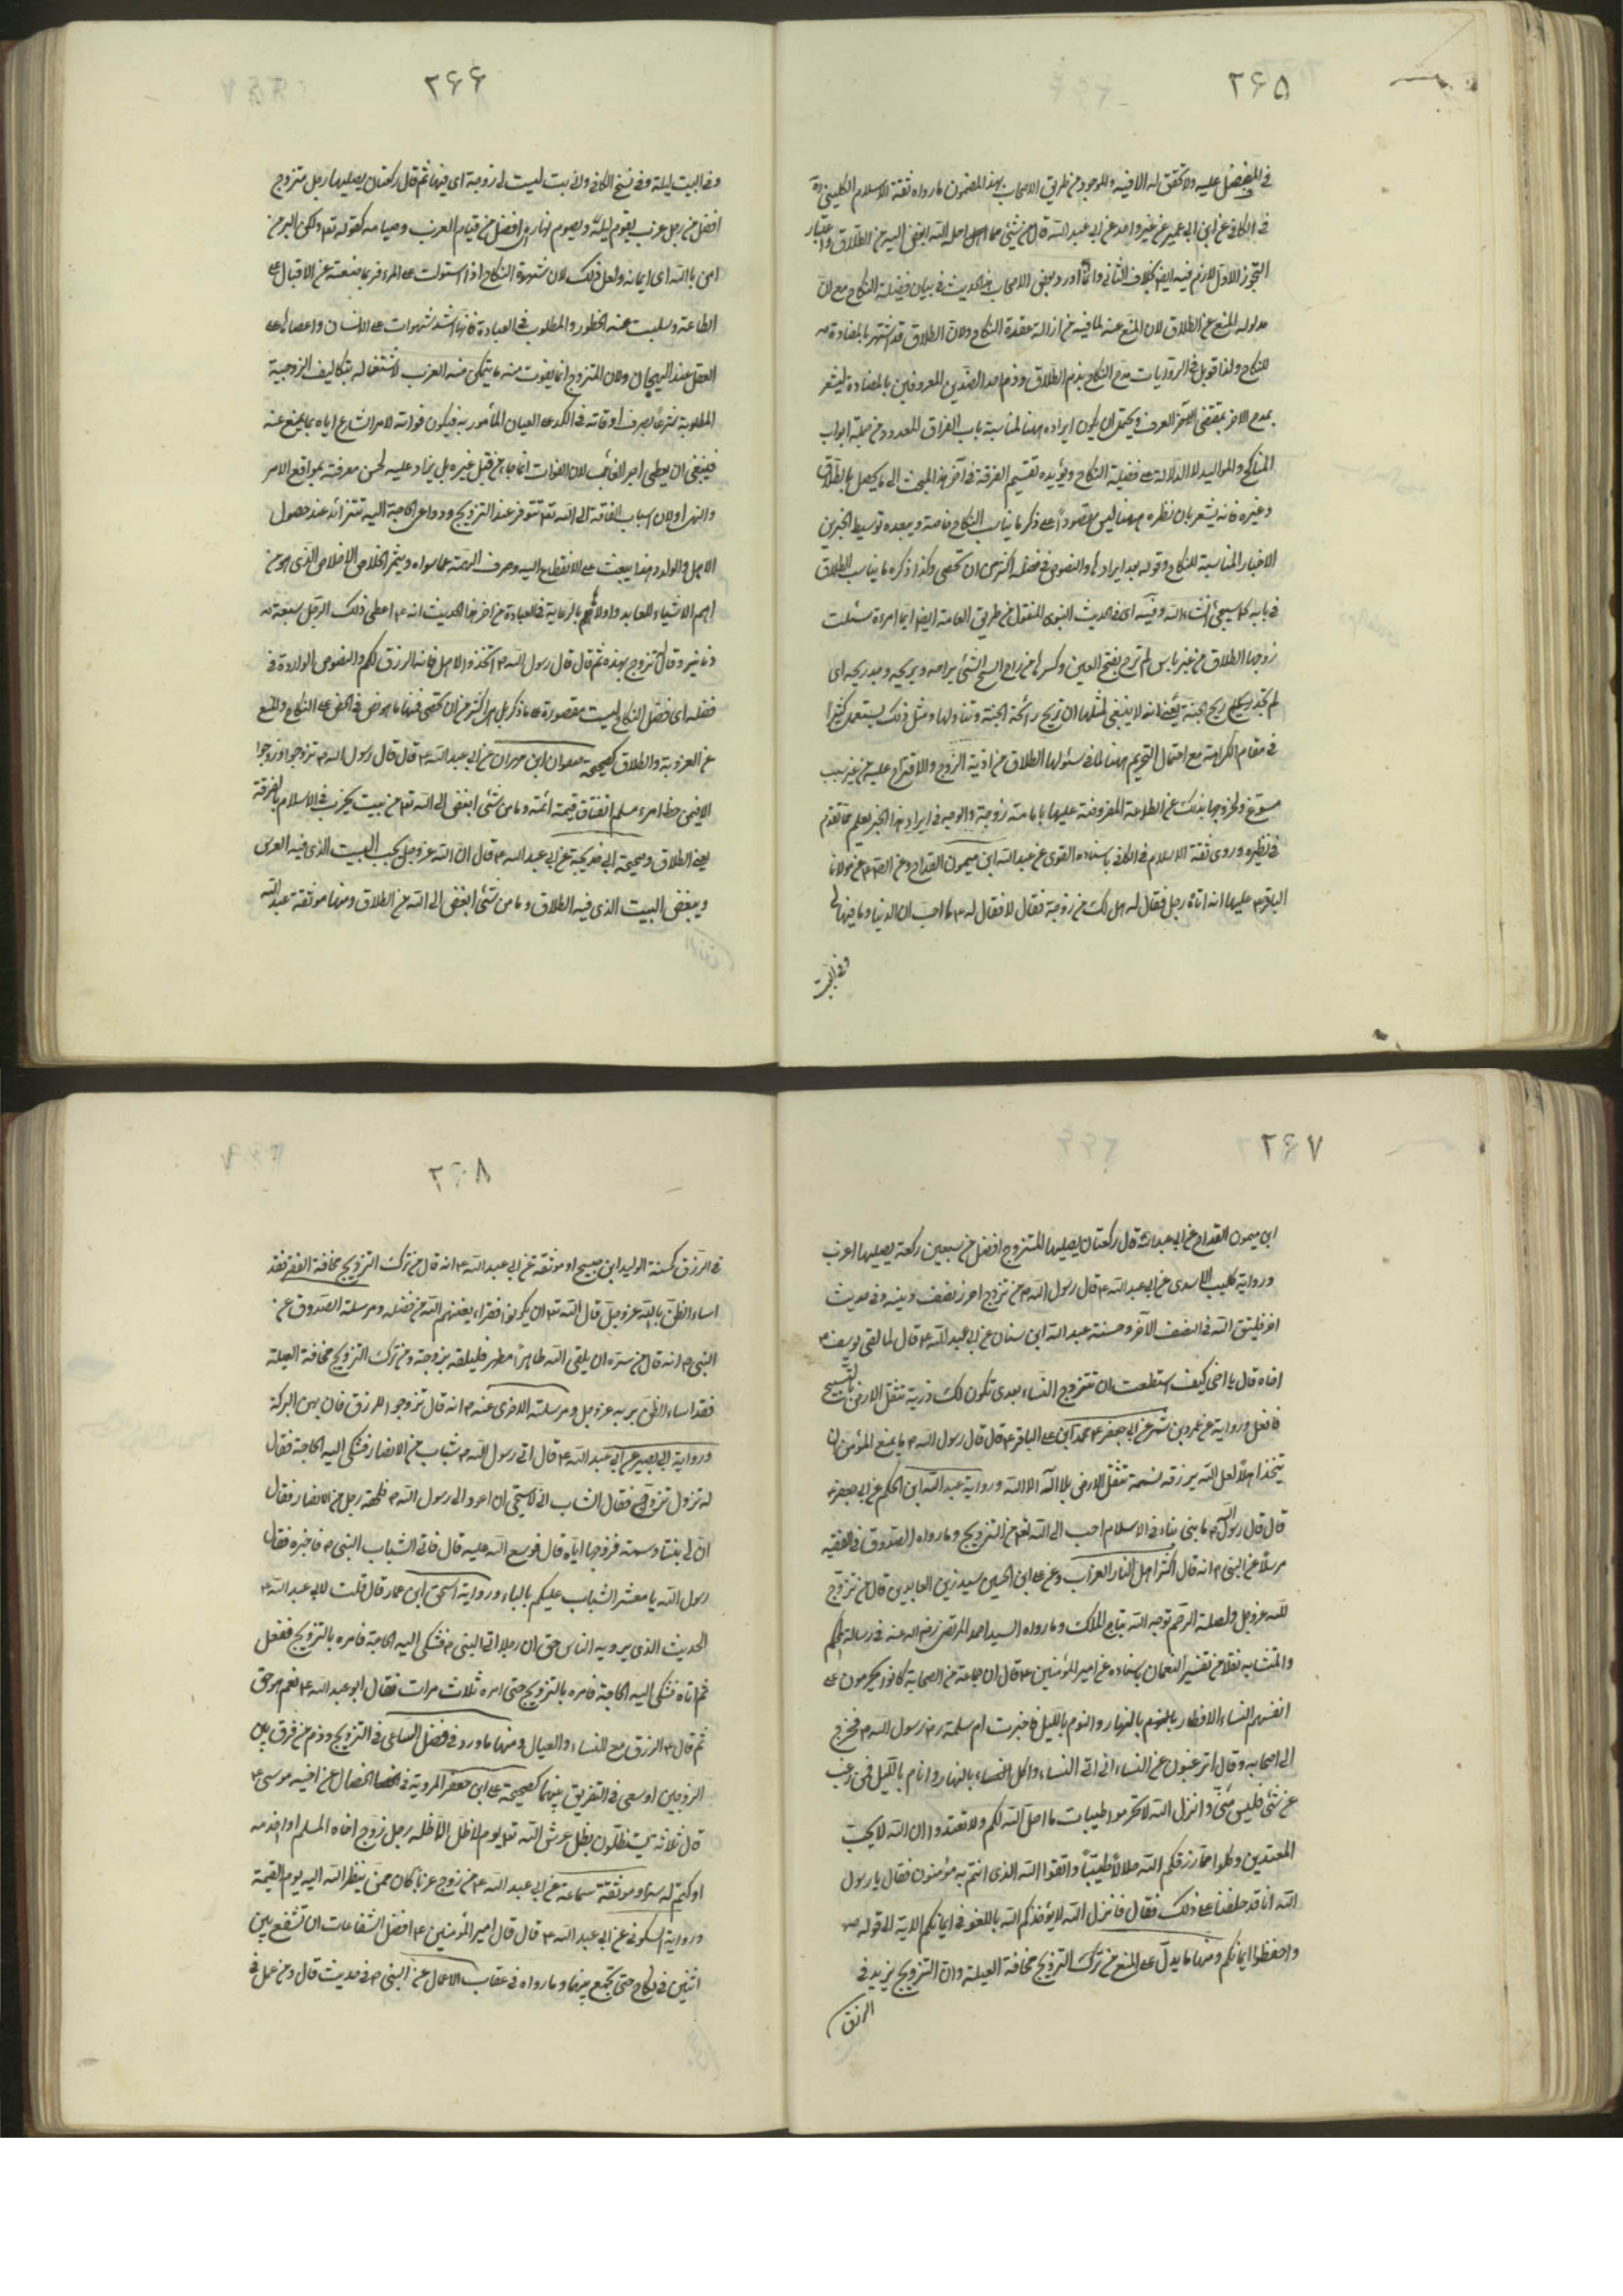 ۲۶۵
في المفضل عليه ولا تحقق له الا فيه والموجود من طريق الاصحاب بهذا المضمون ما رواه ثقة الاسلام الكليني ره
في الكافي عن ابن ابي عمير عن غير واحد عن ابي عبد الله قال ما من شئ مما احل الله ابغض اليه من الطلاق واعتبار
التجوز الاول لازم فيه ايضا بخلاف الثاني وانما اورد بعض الاصحاب هذا الحديث في بيان فضيلة النكاح مع ان
مدلوله المنع عن الطلاق لان المنع عنه لما فيه من ازالة عقدة النكاح ولان الطلاق قد اشتهر بالمضادة
للنكاح ولذا قوبل في الروايات مدح النكاح بذم الطلاق وذم احد الضدين المعروفين بالمضادة ليشعر
بمدح الاخر بمقتضى العرف ويحتمل ان يكون ايراده ههنا لمناسبة باب الفراق المعدود من جملة ابواب
المناكح والمواليد لا الدلالة على فضيلة النكاح ويؤيده تقسيم الفرقة في آخر هذا المبحث الى ما يحصل بالطلاق
وغيره فانه يشعر بان نظره ههنا ليس مقصودا على ذكر ما يناسب النكاح خاصة ويبعده توسيط الخبرين
الاخبار المناسبة للنكاح وقوله بعد ايرادها والنصوص في فضله اكثر من ان تحصى وكذا ذكره ما يناسب الطلاق
في بابه كما سيجئ انشاء الله وفيه اي في الحديث النبوي المنقول من طريق العامة ايضا ايما امراة سئلت
زوجها الطلاق من غير باس لم ترح بفتح العين وكسرها من راح الشئ يراحه ويريحه وجد ريحه اي
لم تجد ريح الجنة يعني انه لا ينبغي لمثلها ان تريح رائحة الجنة وتناولها ومثل ذلك يستعمل كثيرا
في مقام الكراهة مع احتمال التحريم ههنا لما في سئولها الطلاق من اذية الزوج والاقتراح عليه من غير سبب
مسوغ ولخروجها بذلك عن الطاعة المفروضة عليها ما دامت زوجة والوجه في ايراد هذا الخبر يعلم مما تقدم
في نظيره وروى ثقة الاسلام في الكافي باسناده القوي عن عبد الله ابن ميمون القداح وعن الصادق عن مولانا
الباقر عليهما انه اتاه رجل فقال له هل لك من زوجة فقال لا فقال له ما احب ان الدنيا وما فيها لي
وفي البيت
۲۶۶
وفي البيت ليلة وفي نسخ الكافي واني بت ليست لي زوجة اي فيها ثم قال ركعتان يصليها رجل متزوج
افضل من رجل عزب يقوم ليله ويصوم نهاره اي افضل من قيام العزب وصيامه كقوله تعالى ولكن البر من
امن بالله اي ايمانه ولعل ذلك لان شهوة النكاح اذا استولت على المرء فربما منعته عن الاقبال على
الطاعة وسلبت عنه الحظور والمطلوب في العبادة فانها اشد شهوات على الانسان واعصاها على
العقل عند الهيجان ولان المتزوج انما يفوت منه ما يتمكن منه العزب لاشتغاله بتكاليف الزوجية
المطلوبة شرعا بصرف اوقاته في الكد على العيال المأمور به فيكون فواته لامر الشارع اياه بما يمنع عنه
فينبغي ان يعطى اجر الفائت لان الفوات انما جاء من قبل غيره بل يزاد عليه لحسن معرفته بمواقع الامر
والنهي ولان اسباب الفاقة الى الله تعالى تتوفر عند التزويج ودواعي الحاجة اليه تتزائد عند حصول
الاهل والولد وهذا يبعث على الانقطاع اليه وصرف الهمة عما سواه ويثمر الخلاص الاخلاص الذي هو من
اهم الاشياء للعابد واولاها بالرعاية في العبادة من اخر هذا الحديث انه اعطى ذلك الرجل سبعة
دنانير وقال تزوج بهذه ثم قال قال رسول الله اتخذوا الاهل فانه الرزق لكم والنصوص الواردة في
فضله اي فضل النكاح ليست مقصورة على ما ذكر بل هي اكثر من ان تحصى فمنها ما ورد في الحض على النكاح والمنع
عن العزوبة والطلاق كصحيحة صفوان ابن مهران عن ابي عبد الله قال قال رسول الله تزوجوا وزوجوا
الا فمن حظ امرء مسلم انفاق قيمة ائمة وما من شئ ابغض الى الله تعالى من بيت يخرب في الاسلام بالفرقة
يعني الطلاق وصحيحة ابي خديجة عن ابي عبد الله قال ان الله عز وجل يحب البيت الذي فيه العرس
ويبغض البيت الذي فيه الطلاق وما من شئ ابغض الى الله من الطلاق ومنها موثقة عبد الله
۲۶۷
ابن ميمون القداح عن ابي عبد الله قال ركعتان يصليها المتزوج افضل من سبعين ركعة يصليها اعزب
ورواية كليب الاسدي عن ابي عبد الله قال قال رسول الله من تزوج احرز نصف دينه وفي حديث
اخر فليتق الله في النصف الآخر وحسنة عبد الله ابن سنان عن ابي عبد الله قال لما لقى يوسف
اخاه قال يا اخي كيف استطعت ان تتزوج النساء بعدي تكون لك ذرية تثقل الارض بالتسبيح
فافعل ورواية عن عمرو بن شمر عن ابي جعفر محمد ابن علي الباقر قال قال رسول الله ما يمنع المؤمن ان
يتخذ اهلا لعل الله يرزقه نسمة تثقل الارض بلا اله الا الله ورواية عبد الله ابن الحكم عن ابي جعفر
قال قال رسول الله ما بني بناء في الاسلام احب الى الله تعالى من التزويج وما رواه الصدوق في الفقيه
مرسلا عن النبي انه قال اكثر اهل النار العزاب وعن علي ابن الحسين سيد زين العابدين قال من تزوج
لله عز وجل ولصلة الرحم توجه الله بتاج الملك وما رواه السيد احمد المرتضى رضي الله عنه في رسالة المحكم
والمتشابه نقلا من تفسير النعمان باسناده عن امير المؤمنين قال ان جماعة من الصحابة كانوا يحرمون على
انفسهم النساء والافطار بالنهار والنوم بالليل فاخبرت ام سلمة رسول الله فخرج
الى اصحابه وقال اترغبون عن النساء اني اتي النساء واكل بالنهار وانام بالليل فمن رغب
عن شئ فليس مني وانزل الله لا تحرموا طيبات ما احل الله لكم ولا تعتدوا ان الله لا يحب
المعتدين وكلوا مما رزقكم الله حلالا طيبا واتقوا الله الذي انتم به مؤمنون فقال يا رسول
الله انا قد حلفنا على ذلك فقال فانزل الله لا يؤاخذكم الله باللغو في ايمانكم الاية الى قوله
واحفظوا ايمانكم ومنها ما يدل على المنع من ترك التزويج مخافة العيلة وان التزويج يزيد في
الرزق
۲۶۸
في الرزق كحسنة الوليد ابن صبيح او موثقة عن ابي عبد الله انه قال من ترك التزويج مخافة الفقر فقد
اساء الظن بالله عز وجل قال الله تعالى ان يكونوا فقراء يغنهم الله من فضله ومرسلة الصدوق عن
النبي انه قال من سره ان يلقى الله طاهرا مطهرا فليلقه بزوجة ومن ترك التزويج مخافة العيلة
فقد اساء الظن بربه عز وجل ومرسلته الاخرى عنه انه قال تزوجوا للرزق فان بهن البركة
ورواية ابي بصير عن ابي عبد الله قال اتى رسول الله شباب من الانصار فشكى اليه الحاجة فقال
له تزوج فقال الشاب اني لاستحي ان اعود الى رسول الله فلحقه رجل من الانصار فقال
ان لي بنتا وسمة فزوجها اياه قال فوسع الله عليه قال فاتى الشباب النبي فاخبره فقال
رسول الله يا معشر الشباب عليكم بالباه ورواية اسحق ابن عمار قال قلت لابي عبد الله
الحديث الذي يرويه الناس حق ان رجلا اتى النبي فشكى اليه الحاجة فامره بالتزويج ففعل
ثم اتاه فشكى اليه الحاجة فامره بالتزويج حتى امره ثلاث مرات فقال ابو عبد الله نعم هو حق
ثم قال الرزق مع النساء والعيال ومنها ما ورد في فضل الساعي في التزويج وذم من فرق بين
الزوجين او سعى في التفريق بينهما كصحيحة علي ابن جعفر المروية في الخصال عن اخيه موسى
قال ثلاثة يستظلون بظل عرش الله تعالى يوم لا ظل الا ظله رجل زوج اخاه المسلم او اخدمه
او كتم له سرا وموثقة سماعة عن ابي عبد الله من زوج عزبا كان ممن ينظر الله اليه يوم القيمة
ورواية السكوني عن ابي عبد الله قال قال امير المؤمنين افضل الشفاعات ان تشفع بين
اثنين في نكاح حتى يجمع بينهما وما رواه في عقاب الاعمال عن النبي في حديث قال ومن عمل في